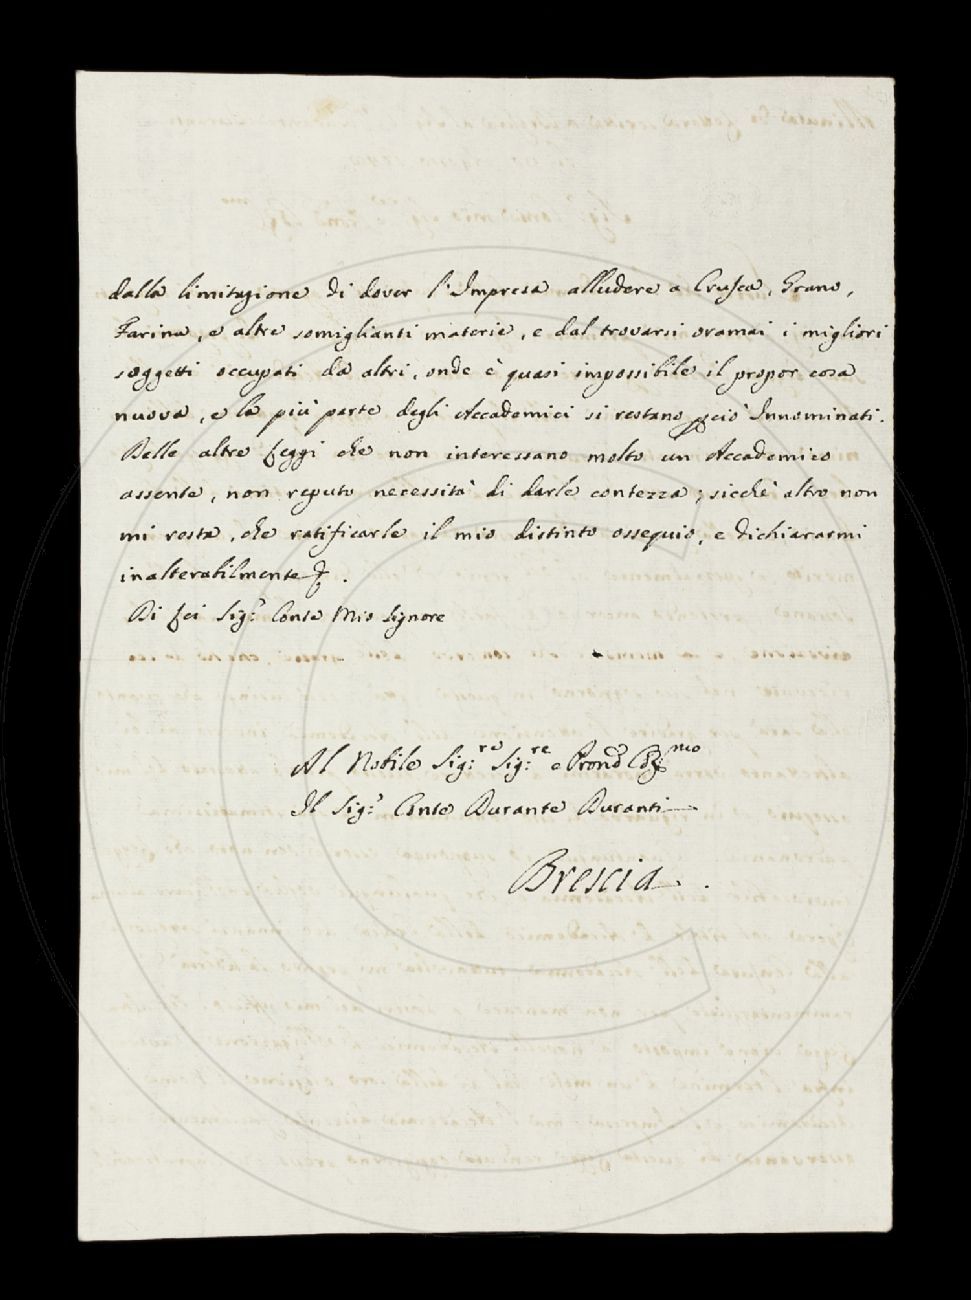 dalla limitazione di dover l'Impresa alludere a Crusca, Grano,
Farina, e altre somiglianti materie, e dal trovarsi oramai i migliori
soggetti occupati da altri, onde è quasi impossibile il propor cosa
nuova, e la più parte degli Accademici si restano pciò Innominati.
Delle altre Leggi che non interessano molto un Accademico
assente, non reputo necessità di darle contezza; sicchè altro non
mi resta, che ratificarle il mio distinto ossequio, e dichiararmi
inalterabilmente
Di Lei Sig.r Conte Mio Signore
Al Nobile Sig:re Sig:re e Pron
Il Sig.r Conte Durante Duranti
Brescia.